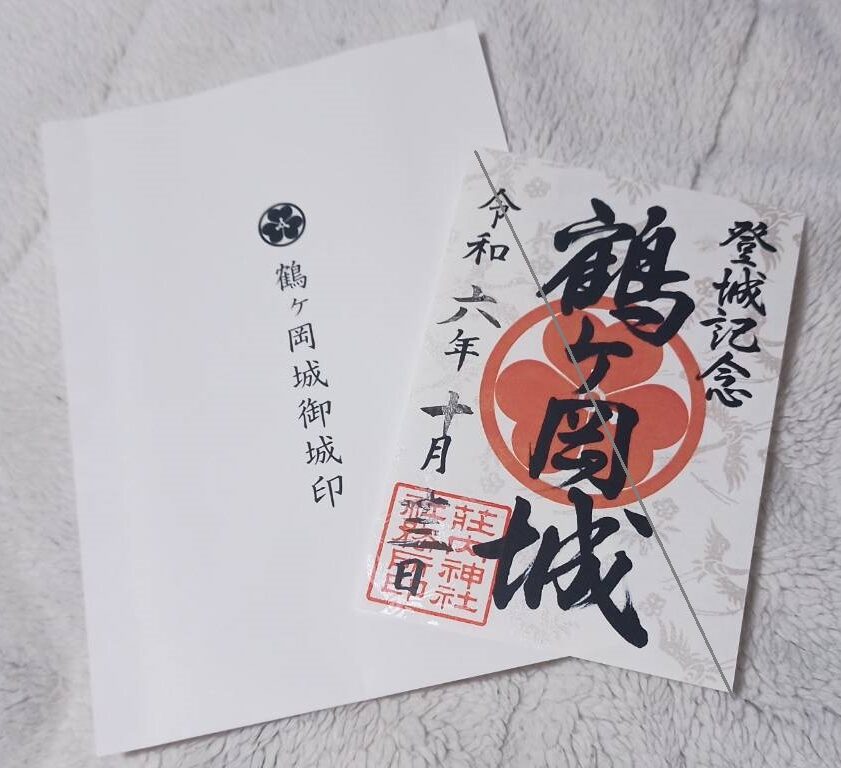 鶴ヶ岡城御城印
登城記念
鶴ヶ岡城
令和六年十月日
荘内神社
社務所印